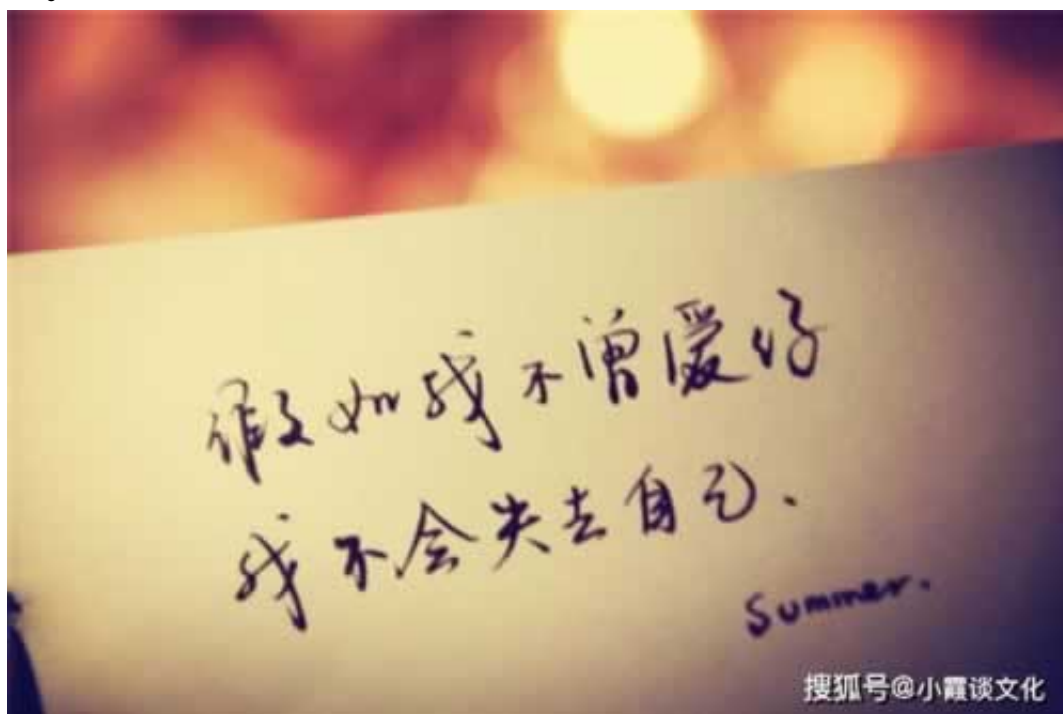 假如我不曾爱你
我不会失去自己、
Summer.
搜狐号@小霞谈文化